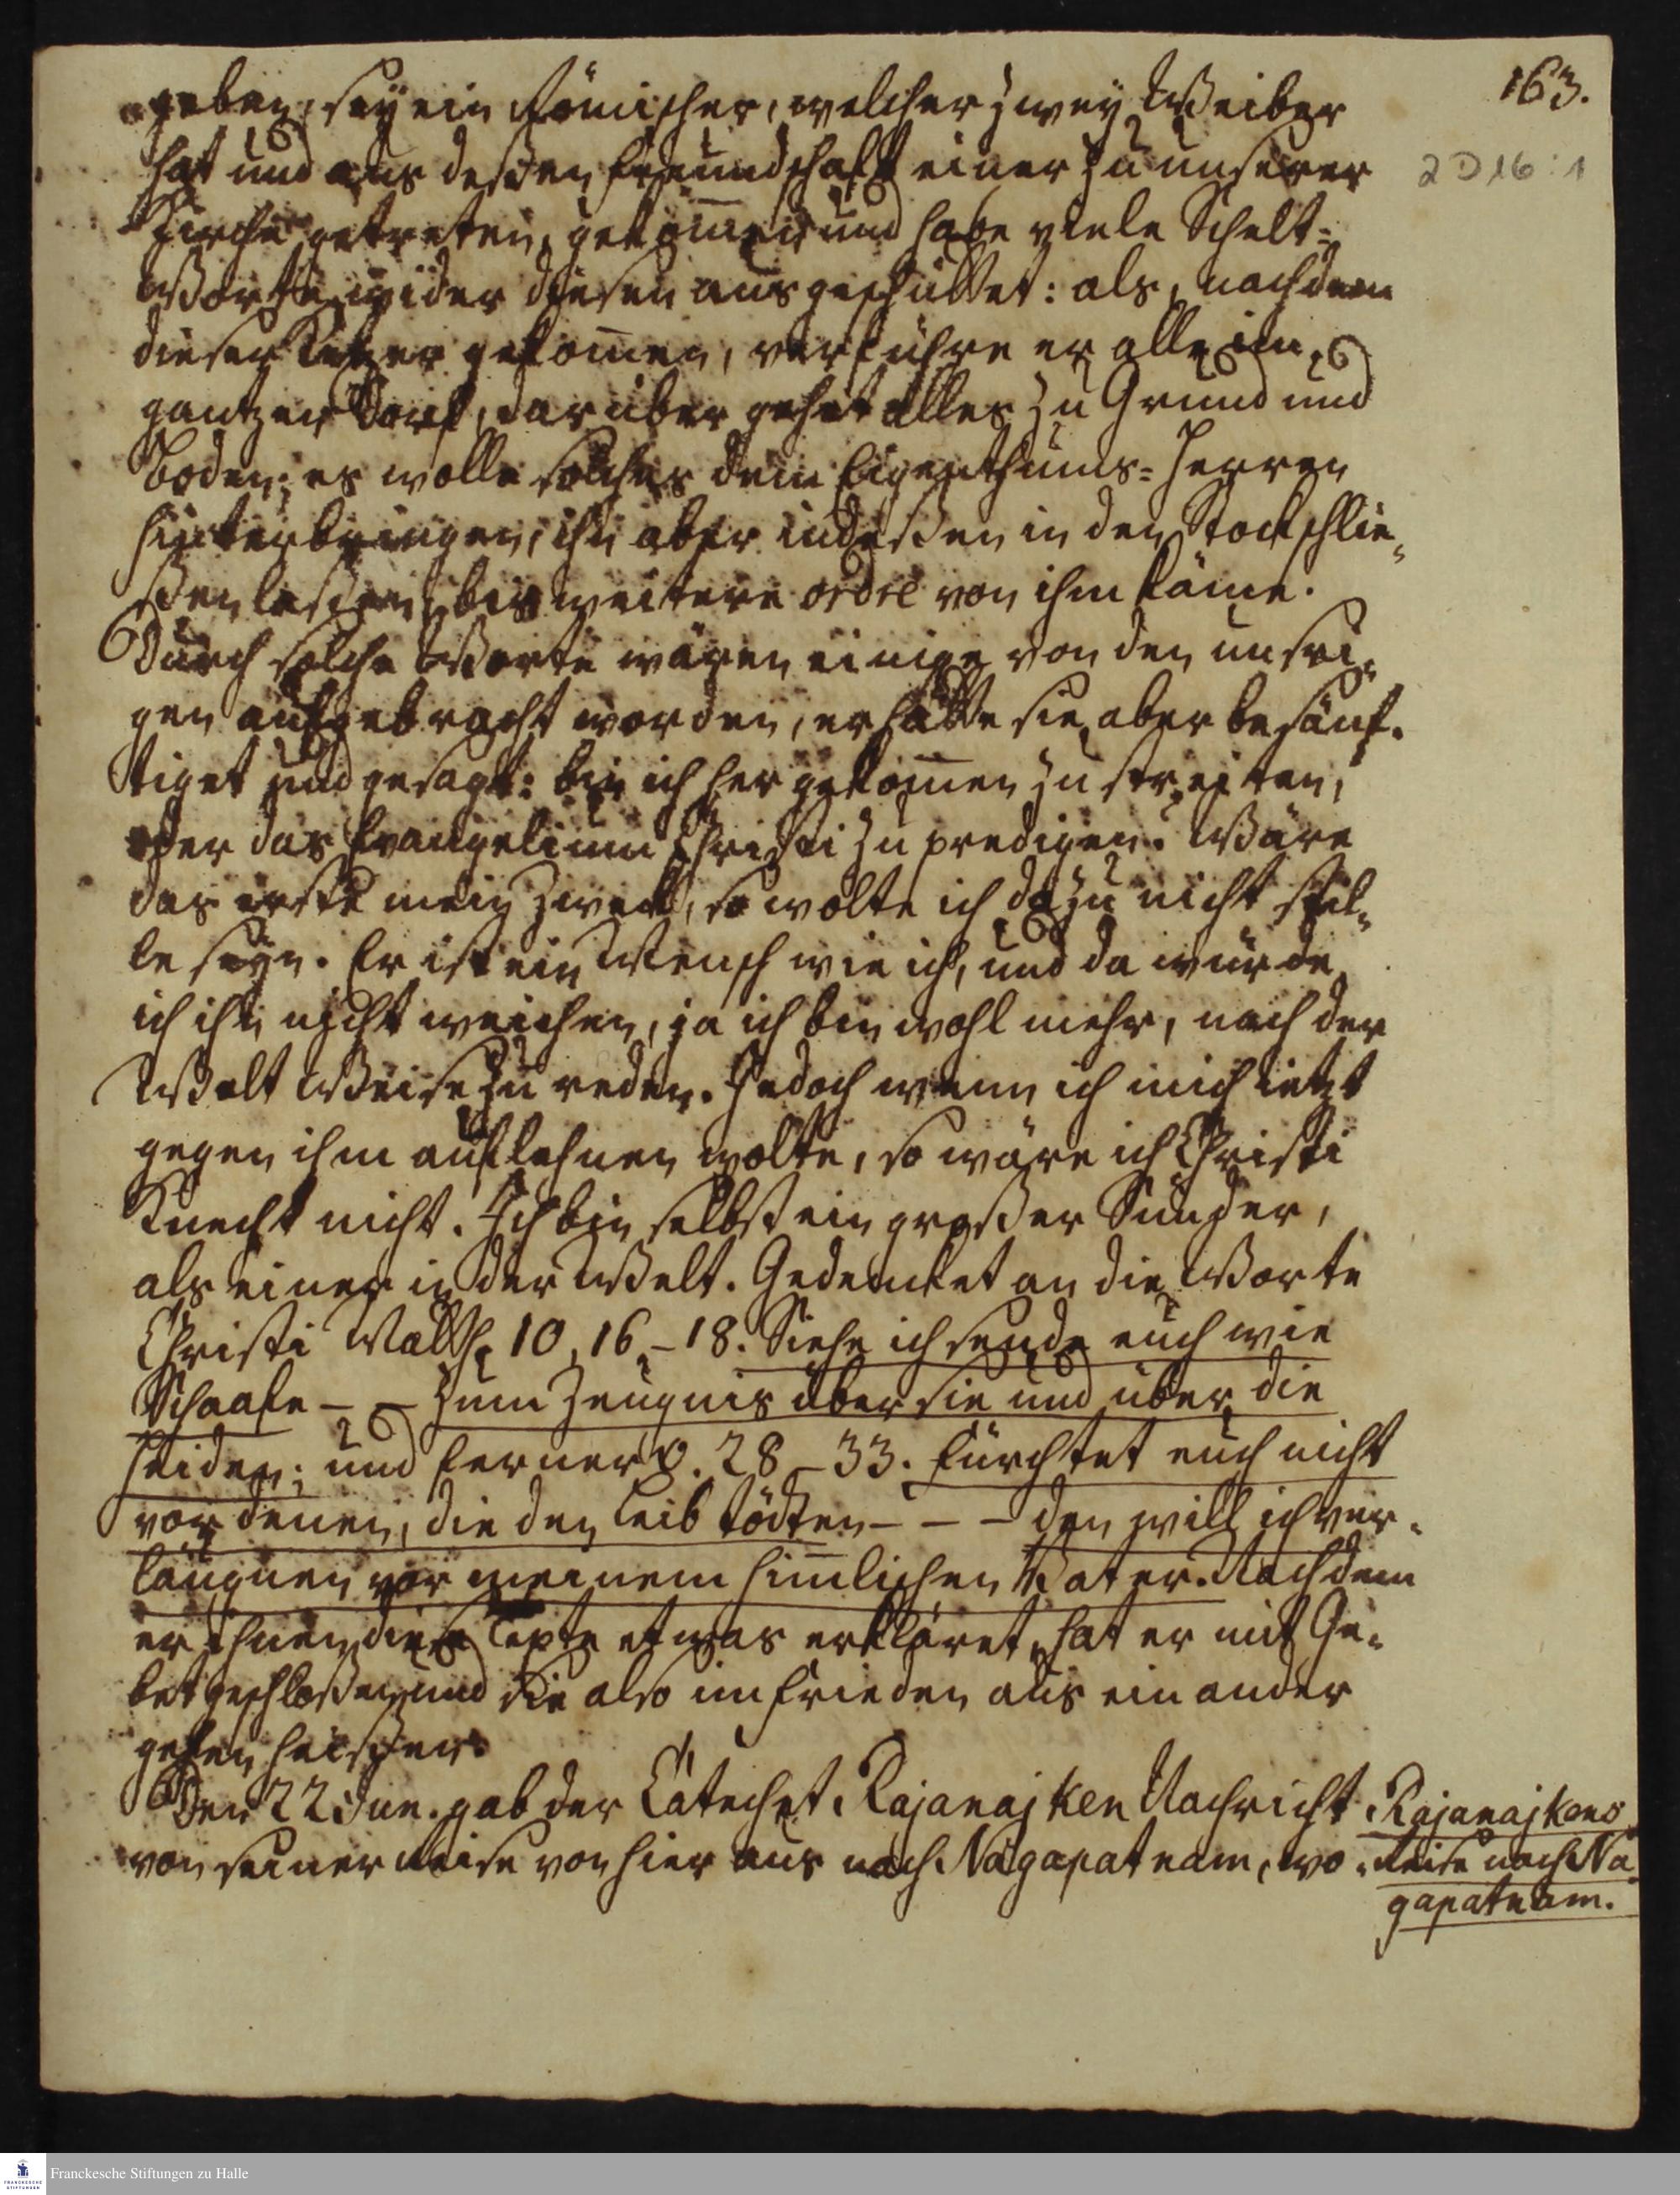 163.
2 D 16 : 1
geben, sey ein Römischer, welcher zwey Weiber
hat und aus deßen Freundschafft einer zu unserer
Kirche getreten, gekom̄en und habe viele Schelt=
Worte wider diesen ausgeschüttet: als, nachdem
dieser Ketzer gekom̄en, verführe er alle im
gantzen Dorf, darüber gehet alles zu Grund und
Boden; er wolle solches dem Eigenthums=Herren
hinterbringen, ihn aber indeßen in den Stock schlie=
ßen laßen, bis weitere ordre von ihm käme.
Durch solche Worte wären einige von den unsri=
gen aufgebracht worden, er hätte sie aber besänf=
tiget und gesagt: bin ich her gekom̄en zu streiten,
oder das Evangelium Christi zu predigen? Wäre
das erste mein Zweck, so wolte ich dazu nicht stil=
le seyn. Er ist ein Mensch wie ich, und da würde
ich ihm nicht weichen, ja ich bin wohl mehr, nach der
Welt Weise zu reden. Jedoch wenn ich mich ietzt
gegen ihm auflehnen wolte, so wäre ich Christi
Knecht nicht. Ich bin selbst ein großer Sünder,
als einer in der Welt. Gedencket an die Worte
Christi Matth. 10, 16.-18. Siehe ich sende euch wie
Schaafe - - zum Zeugnis über sie und über die
Heiden; und ferner v. 28-33. Fürchtet euch nicht
vor denen, die den Leib tödten - - - den will ich ver=
läugnen vor meinem him̄lischen Vater. Nachdem
er ihnen diese Texte etwas erkläret, hat er mit Ge=
bet geschloßen und sie also im Frieden aus einander
gehen heißen.
Den 22 Jun. gab der Catechet Rajanajken Nachricht
von seiner Reise von hier aus nach Nagapatnam, wo=
Rajanajkens
Reise nach Na
gapatnam.
Franckesche Stiftungen zu Halle